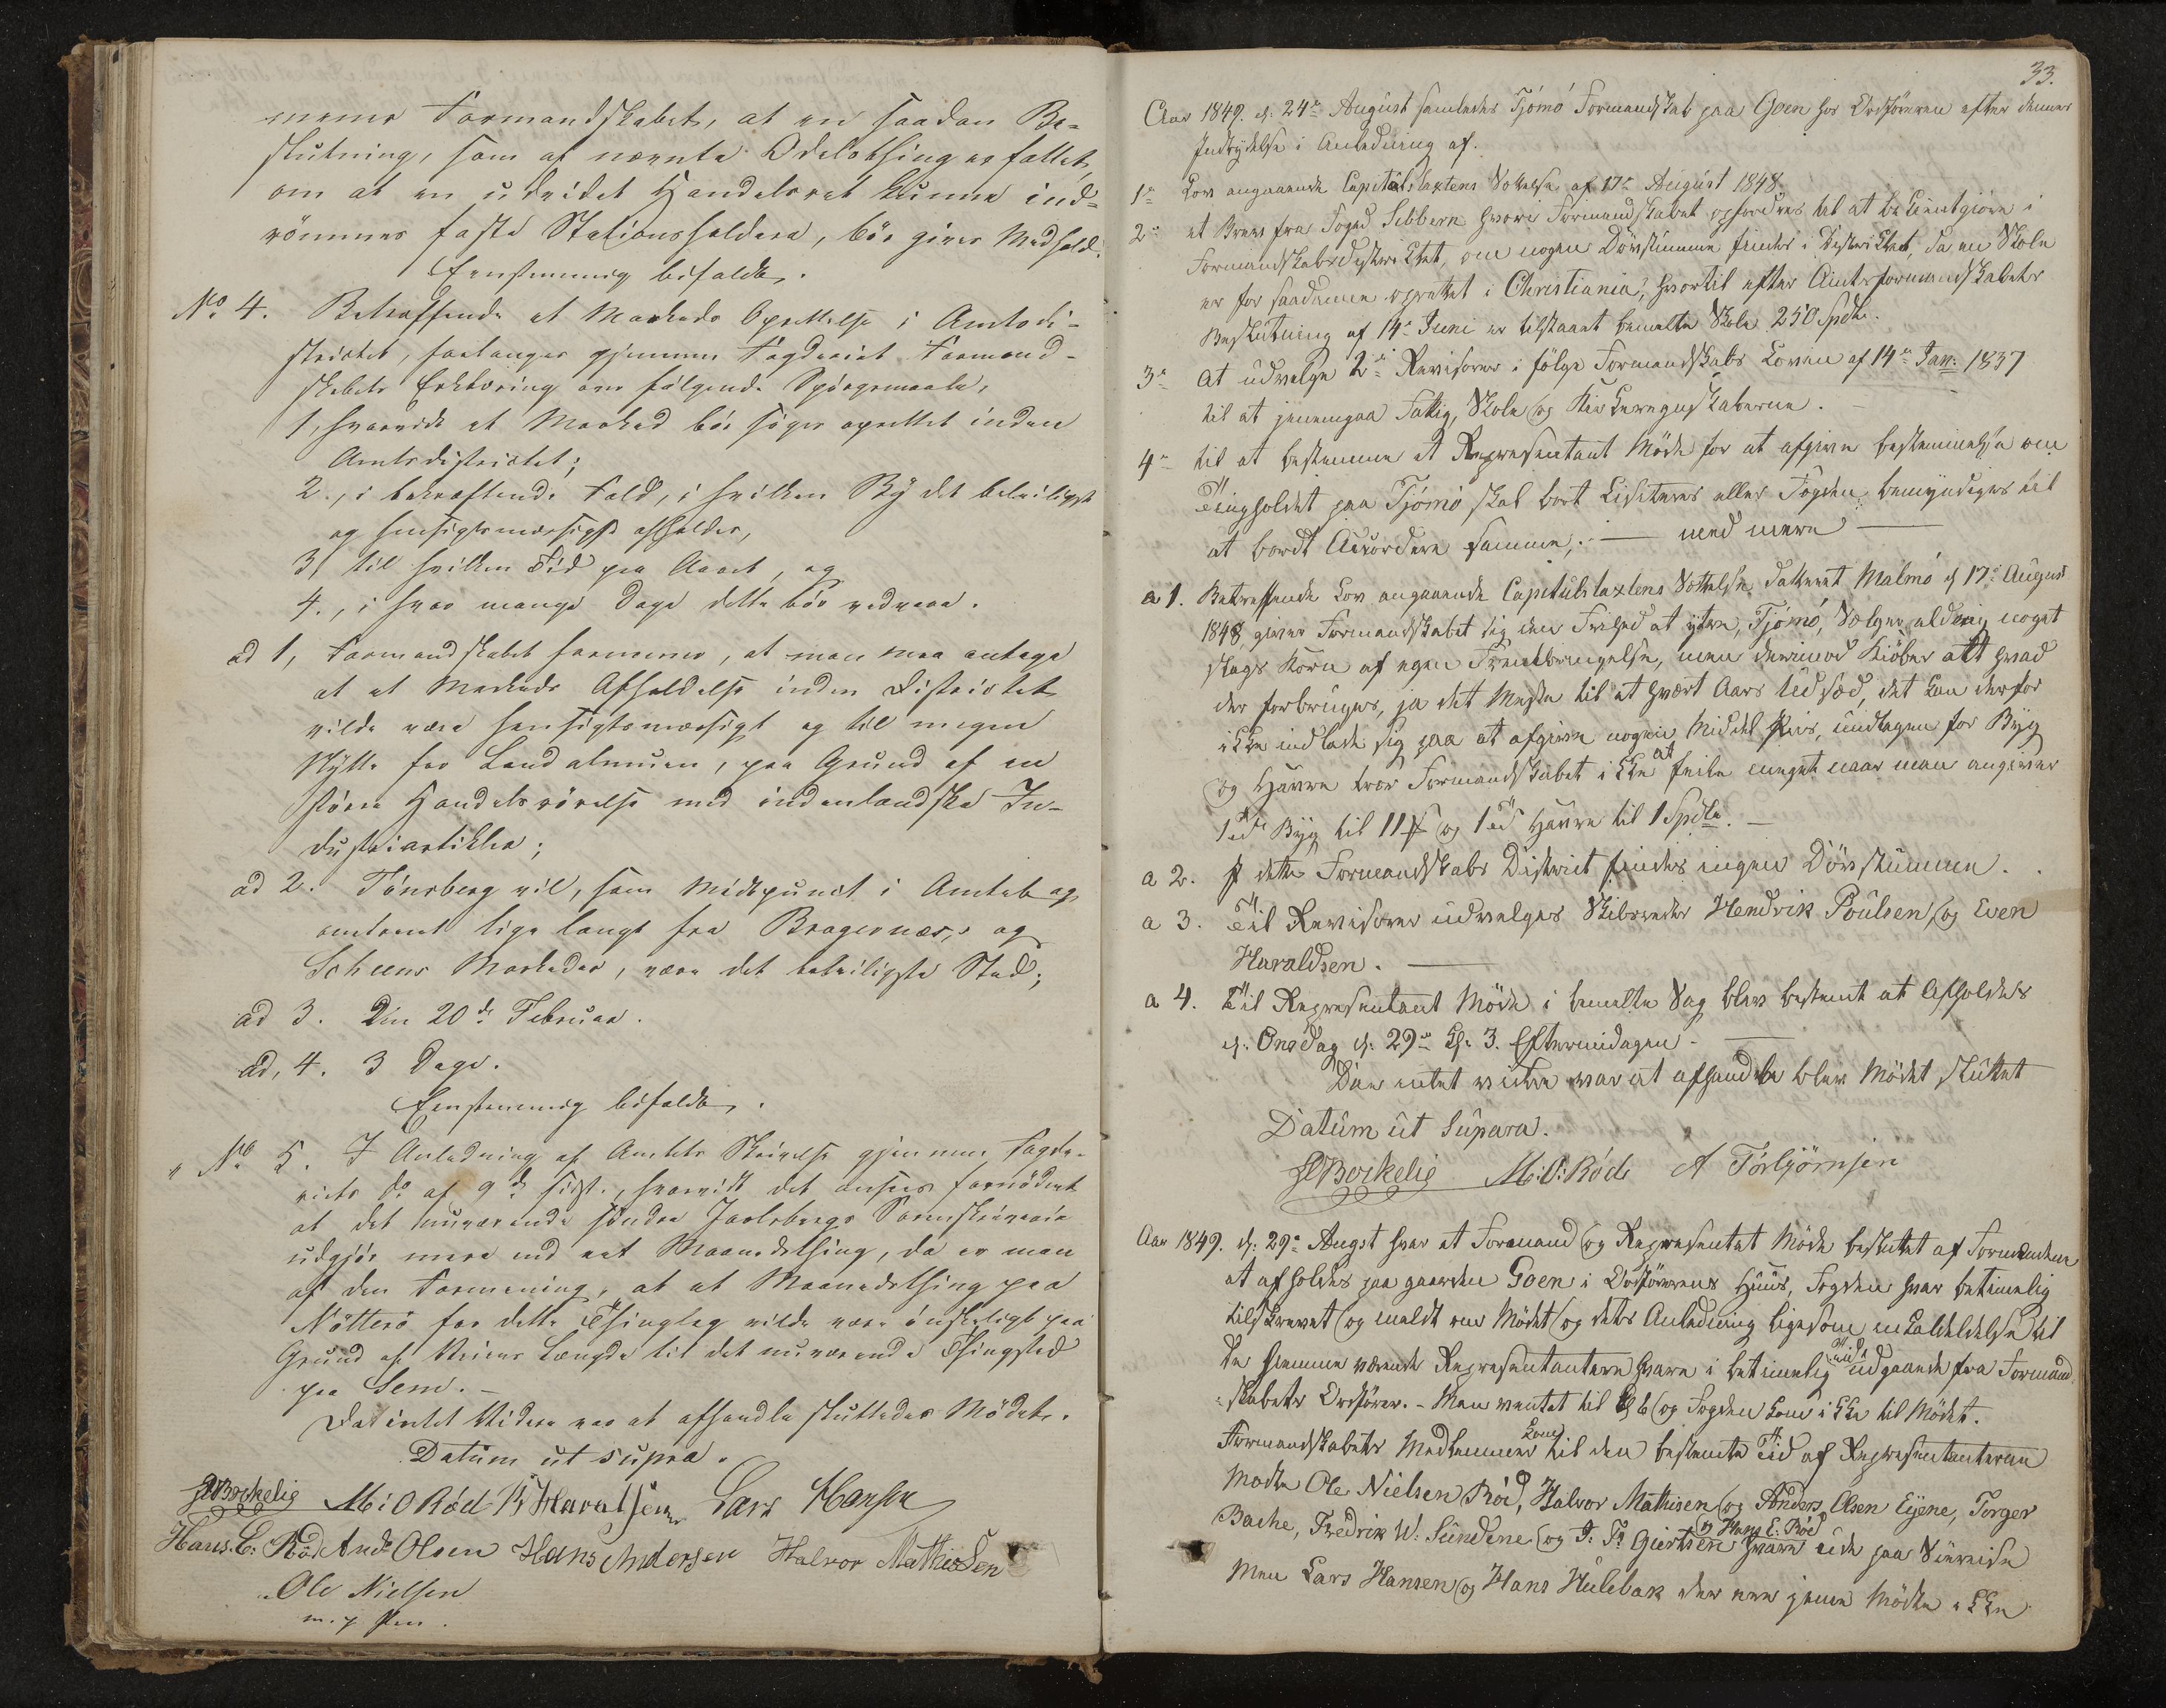 mener Formandskabet, at en saadan Be-
slutning, som af nævnte Odelsthing er fattet,
om at en udvidet Handelsret kunne ind-
römmes faste Stationsholdere, bör gives Medhold.
Eenstemmig bifaldt.
No. 4. Betræffende et Markeds Oprettelse i Amtsdi-
strictet, forlanges gjennem Fogderiet Formand-
skabets Erklæring over fölgende Spörgsmaale,
1, hvorvidt et Marked bör söges oprettet inden
Amtsdistrictet;
2., i bekræftende Fald, i hvilken By det beleiligst
og hensigtsmæssigst afholdes,
3, til hvilken Tid paa Aaret, og
4., i hvor mange Dage dette bör vedvare.
ad 1, Formandskabet formener, at man maa antage
at et Markeds Afholdelse inden Districtet
vilde være hensigtsmæssigt og til megen
Nytte for Landalmuen, paa Grund af en
större Handelsrörelse med indenlandske In-
dustriartikler;
ad 2. Tönsberg vil, som Midtpunct i Amtet og
omtrent lige langt fra Bragernæs, og
Scheens Markeder, være det beleiligste Sted;
ad 3. Den 20de Februar.
ad, 4. 3 Dage.
Eenstemmig bifaldt.
" No 5. I Anledning af Amtets Skrivelse gjennem Fogde-
riets do af 9de sidst., hvorvidt det ansees fornödent
at det nuværende söndre Jarlsbergs Sorenskriverie
udgjör mere end eet Maanedsthing, da er man
af den Formening, at et Maanedsthing paa
Nötterö for dette Thinglag vilde være önskeligt paa
Grund af Veiens Længde til det nuværende Thingsted
paa Sem. -
Da intet Videre var at afhandle sluttedes Mödet.
Datum ut supra.
M: O Röd Haraldsen Lars Hansen
Hans. E: Röd And: Olsen Hans Andersen Halvor Mathisen
Ole Nielsen
m. p. Pen.
33.
Aar 1849. d. 24de August samledes Tjömö Formandskab paa Goen hos Ordföreren efter dennes
Indbydelse i Anledning af.
1e Lov angaaende Capitelstaxtens Sættelse af 17de August 1848.
2e et Brev fra Foged Sibbern hvori Formandskabet opfordres til at bekientgiöre i
Formandskabsdistriktet, om nogen Dövstumme findes i Distriktet, da en Skole
er for saadanne oprettet i Christiania, hvortil efter Amtsformandskabets
Beslutning af 14de Juni er tilstaaet bemelte Skole 250 Spdlr.
3e At udvælge 2de Revisorer i fölge Formandskabs Loven af 14de Jan: 1837
til at jenemgaa Fattig, Skole og Kirkeregnskaberne.
4e til at bestemme et Representant Möde for at afgive bestemmelse om
Tingholdet paa Tjömö skal bort Lisiteres eller Fogden bemyndiges til
at bordt Accordere samme, — med mere —
a 1. Betreffende Lov angaaende Capitelstaxtens Sættelse, datteret Malmö d 17de August
1848, giver Formandskabet sig den Frihed at ytre, Tjömö, Sælger aldrig noget
slags Korn af egen Frembringelse, men derimod Kiöber alt hvad
der forbruges, ja det Meste til at hvert Aars Udsæd, det kan derfor
ikke indlade sig paa at afgive nogen Middel Priis, undtagen for Byg
og Havre tror Formandskabet ikke at feile meget naar man angiver
1 td Byg til 11 og 1 td Havre til 1 Spdlr. —
a 2. I dette Formandskabs District findes ingen Dövstumme.
a 3. Til Revisorer udvelges Skibsreder Hendrik Poulsen og Even
Haraldsen. —
a 4. Til Representant Möde i bemelte Sag blev bestemt at Afholdes
d: Onsdag d: 29de Kl: 3. Eftermidagen. —
Daa intet videre var at afhandle blev Mödet sluttet
Datum ut Supara.
M: O: Röd A Torbjörnsen
Aar 1849. d: 29de Augst hvar et Formand og Representet Möde beslutet af Formændene
at afholdes paa gaarden Goen i Ordförerens Huus, Fogden hvar betimelig
tilskrevet og meldt om Mödet og dets Anledning ligesom
de hiemmeværende Representantere hvare i betimelig Tid udgaaende fra Formand
skabets Ordförer. - Man ventet til Kl 6 og Fogden kom ikke til Mödet.
Formandskabets Medlemmer kom til den bestemte Tid af Representanterne
Mödte Ole Nielsen Röd, Halvor Mathisen og Anders Olsen Eijene, Torger
Bache, Fredrik W: Sundene og Giertsen og Hans E: Röd hvare ude paa Söereise
Men Lars Hansen og Hans Hulebak der ere jeme Mödte ikke